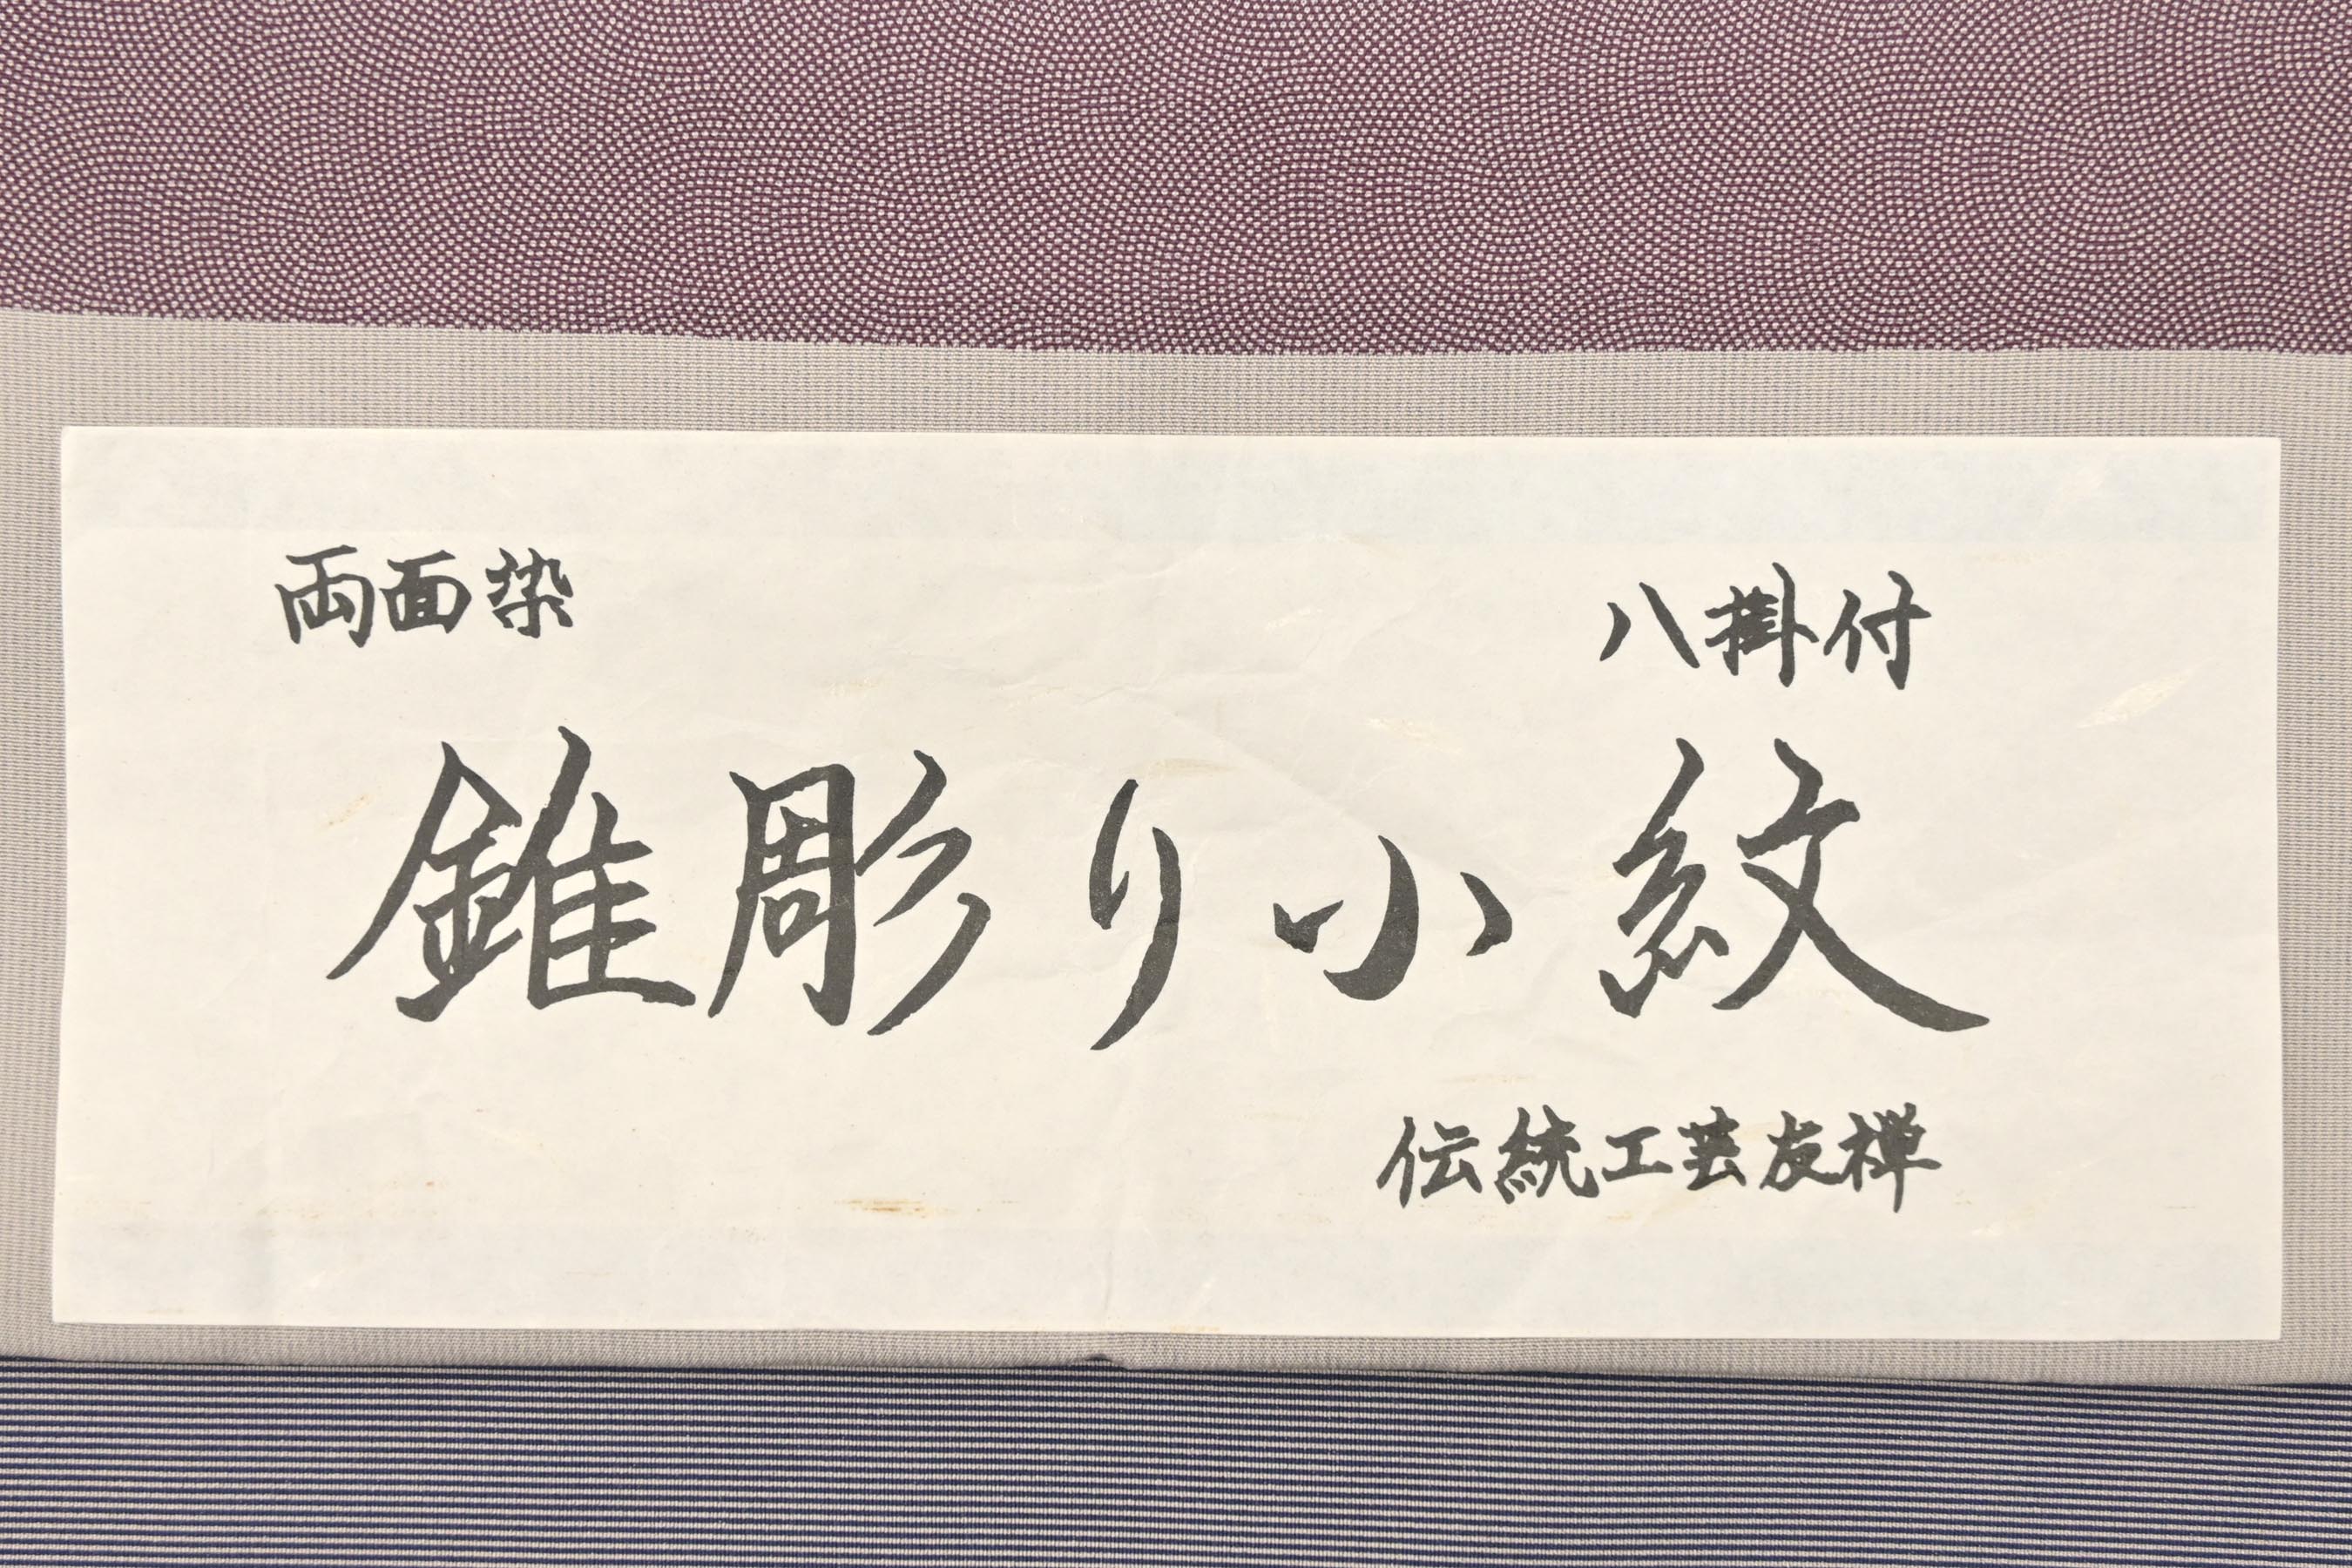 両面染 八掛付
錐彫り小紋
伝統工芸友禅